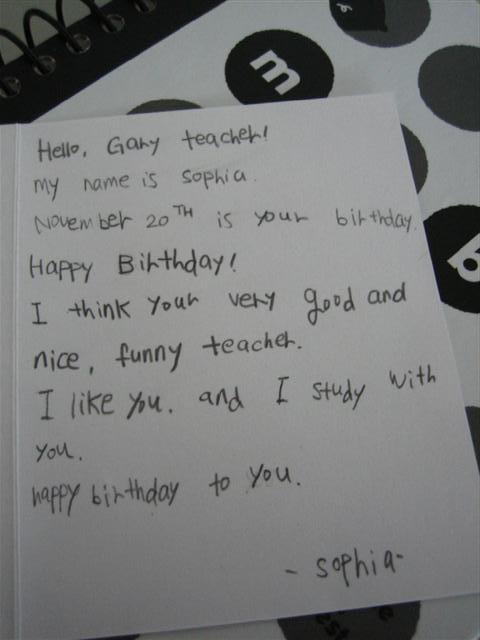 m
Hello, Gary teacher!
my name is sophia.
November 20TH is your birthday.
Happy Birthday!
I think your very good and
nice, funny teacher.
I like you. and I study with
you.
happy birthday to you.
- sophia-